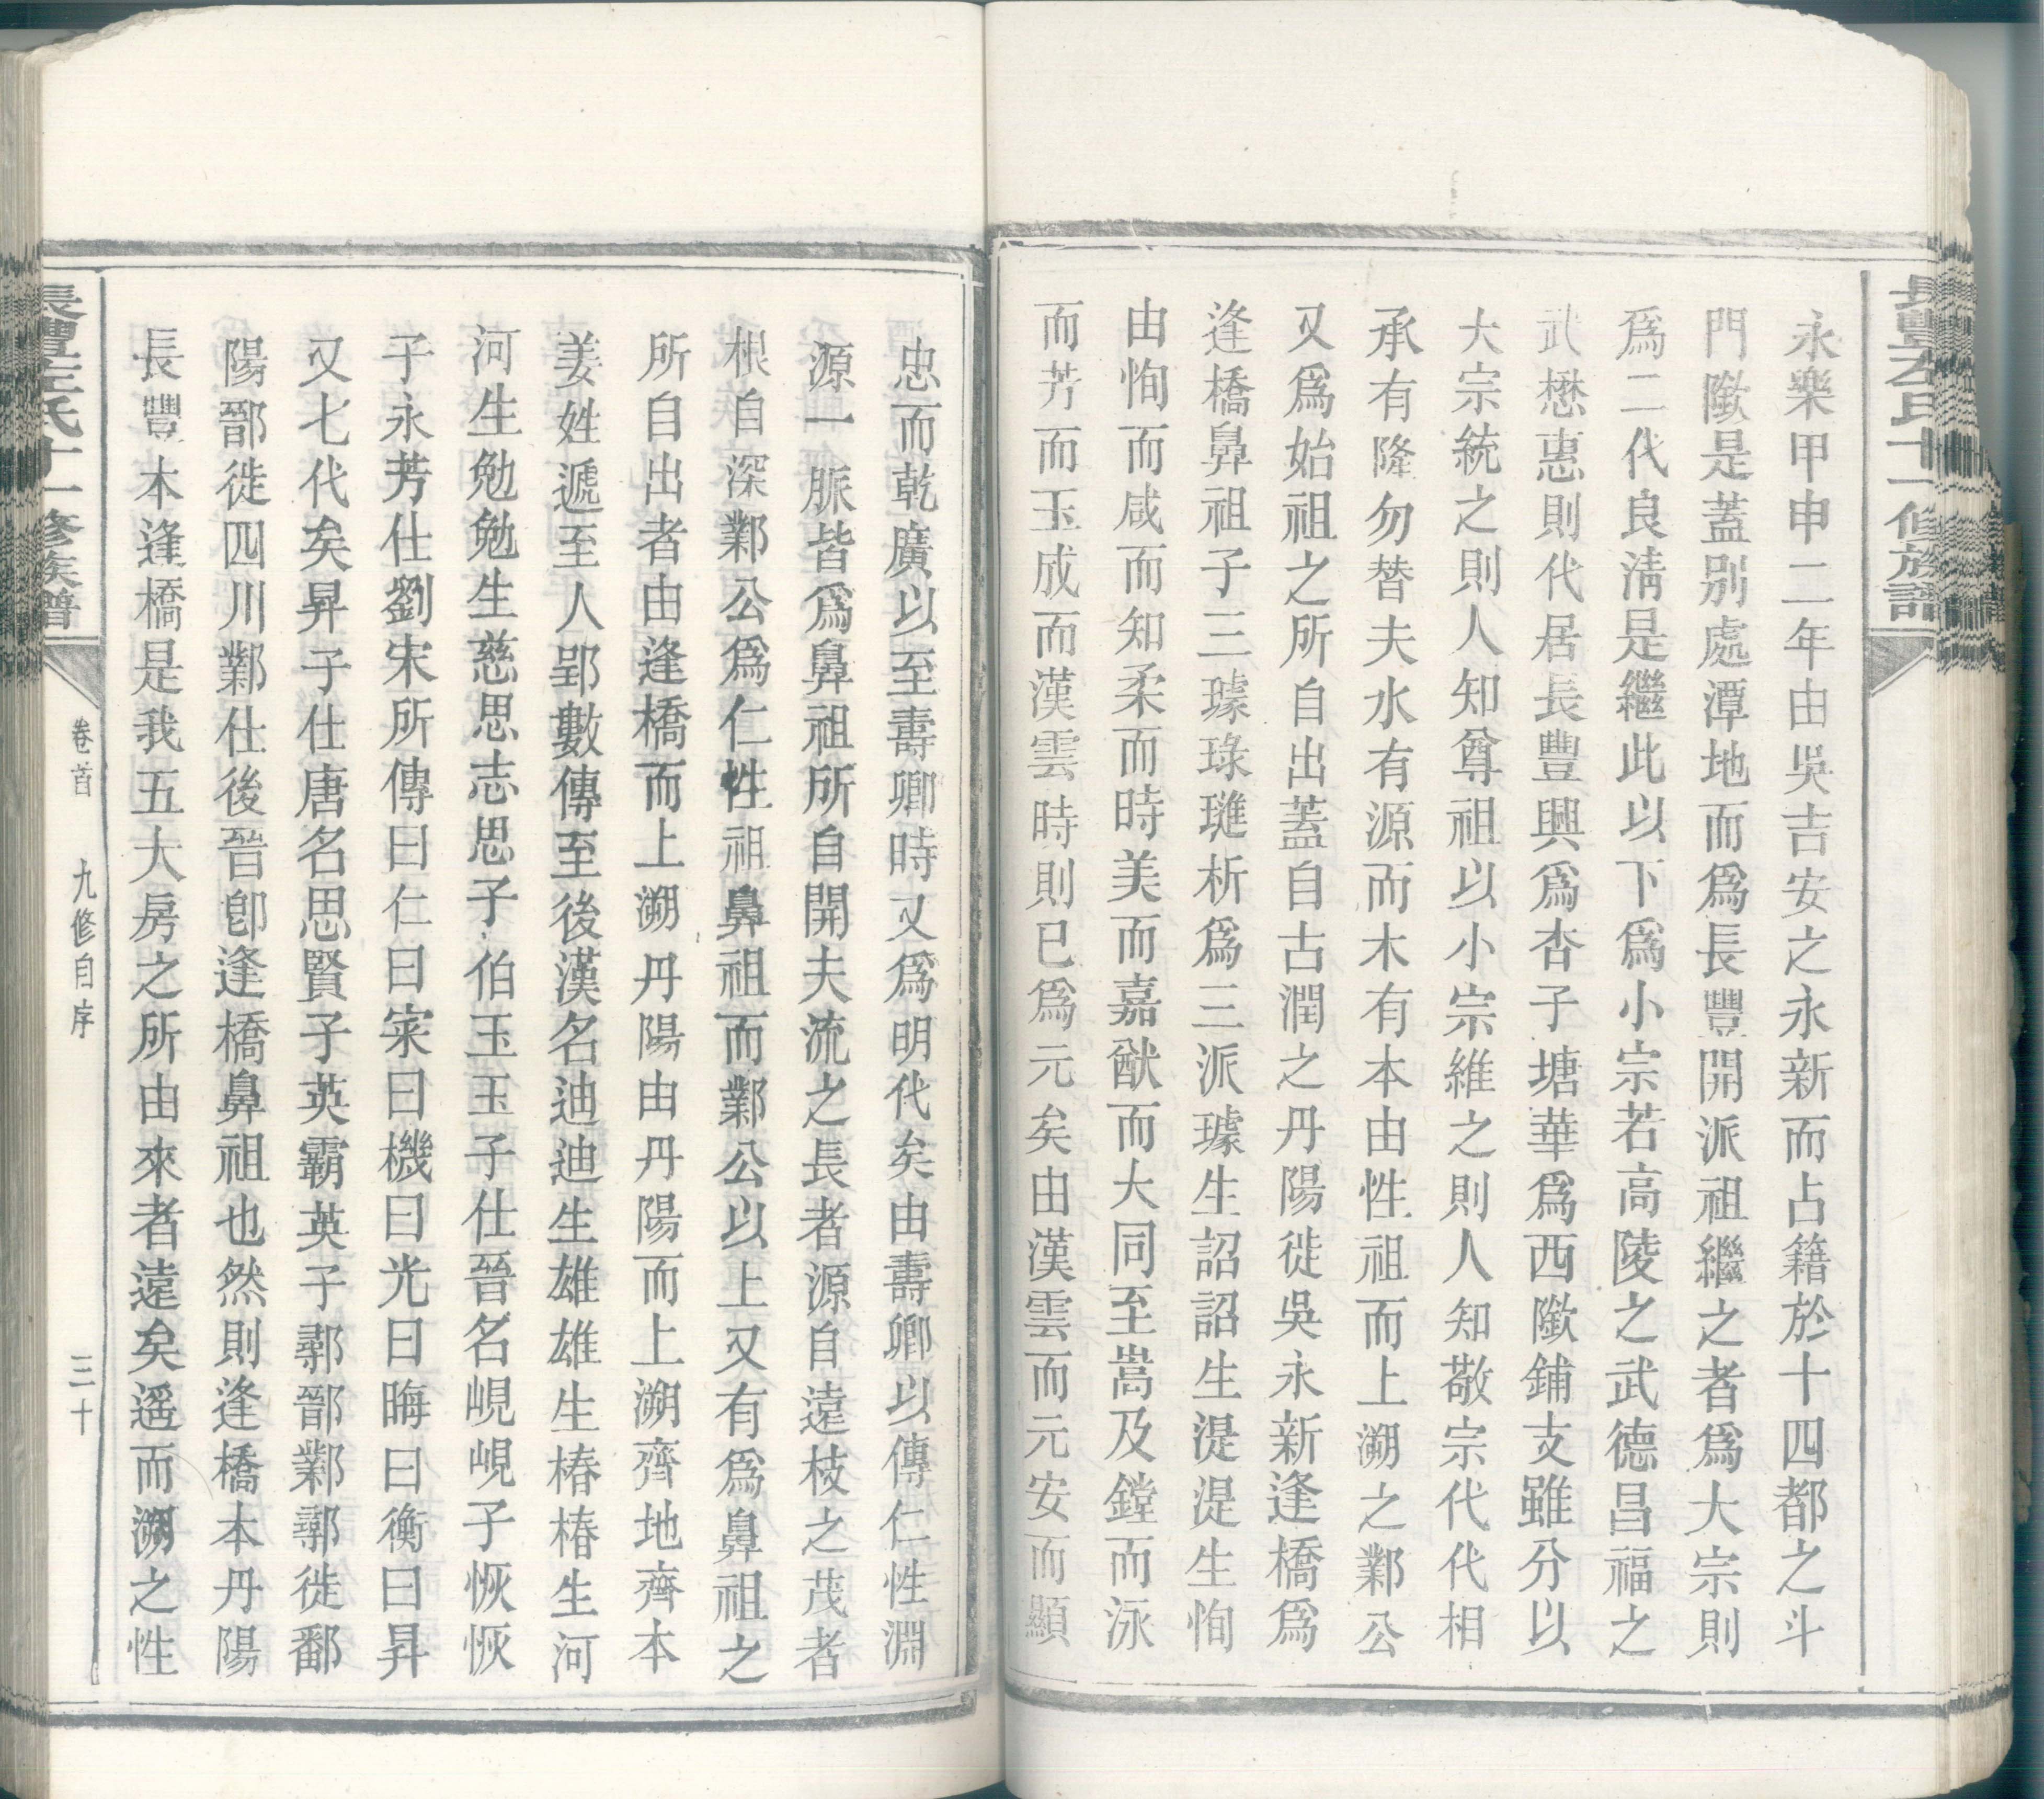 長豐左氏十一修族譜
永樂甲申二年由吳吉安之永新而占籍於十四都之斗
門歐是蓋別處潭地而爲長豐開派祖繼之者爲大宗則
爲二代良淸是繼此以下爲小宗若高陵之武德昌福之
武懋惠則代居長豐興爲杏子塘華爲西歐鋪支雖分以
大宗統之則人知尊祖以小宗維之則人知敬宗代代相
承有降勿替夫水有源而木有本由性祖而上溯之鄴公
又爲始祖之所自出蓋自古潤之丹陽徙吳永新逢橋爲
逢橋鼻祖子三璩琭璡析爲三派璩生詔詔生湜湜生恂
由恂而咸而知柔而時美而嘉猷而大同至嵩及鏜而泳
而芳而玉成而漢雲時則已爲元矣由漢雲而元安而顯
忠而乾廣以至壽卿時又爲明代矣由壽卿以傳仁性淵
源一脈皆爲鼻祖所自開夫流之長者源自遠枝之茂者
根自深鄴公爲仁性祖鼻祖而鄴公以上又有爲鼻祖之
所自出者由逢橋而上溯丹陽由丹陽而上溯齊地齊本
姜姓遞至人郢數傳至後漢名迪迪生雄雄生椿椿生河
河生勉勉生慈思志思子伯玉玉子仕晉名峴峴子恢恢
子永芳仕劉宋所傳曰仁曰寀曰機曰光曰晦曰衡曰昇
又七代矣昇子仕唐名思賢子英霸英子鄩鄑鄴鄩徙鄱
陽鄑徙四川鄴仕後晉卽逢橋鼻祖也然則逢橋本丹陽
長豐本逢橋是我五大房之所由來者遠矣遥而溯之性
長豐左氏十一修族譜
卷首
九修自序
三十